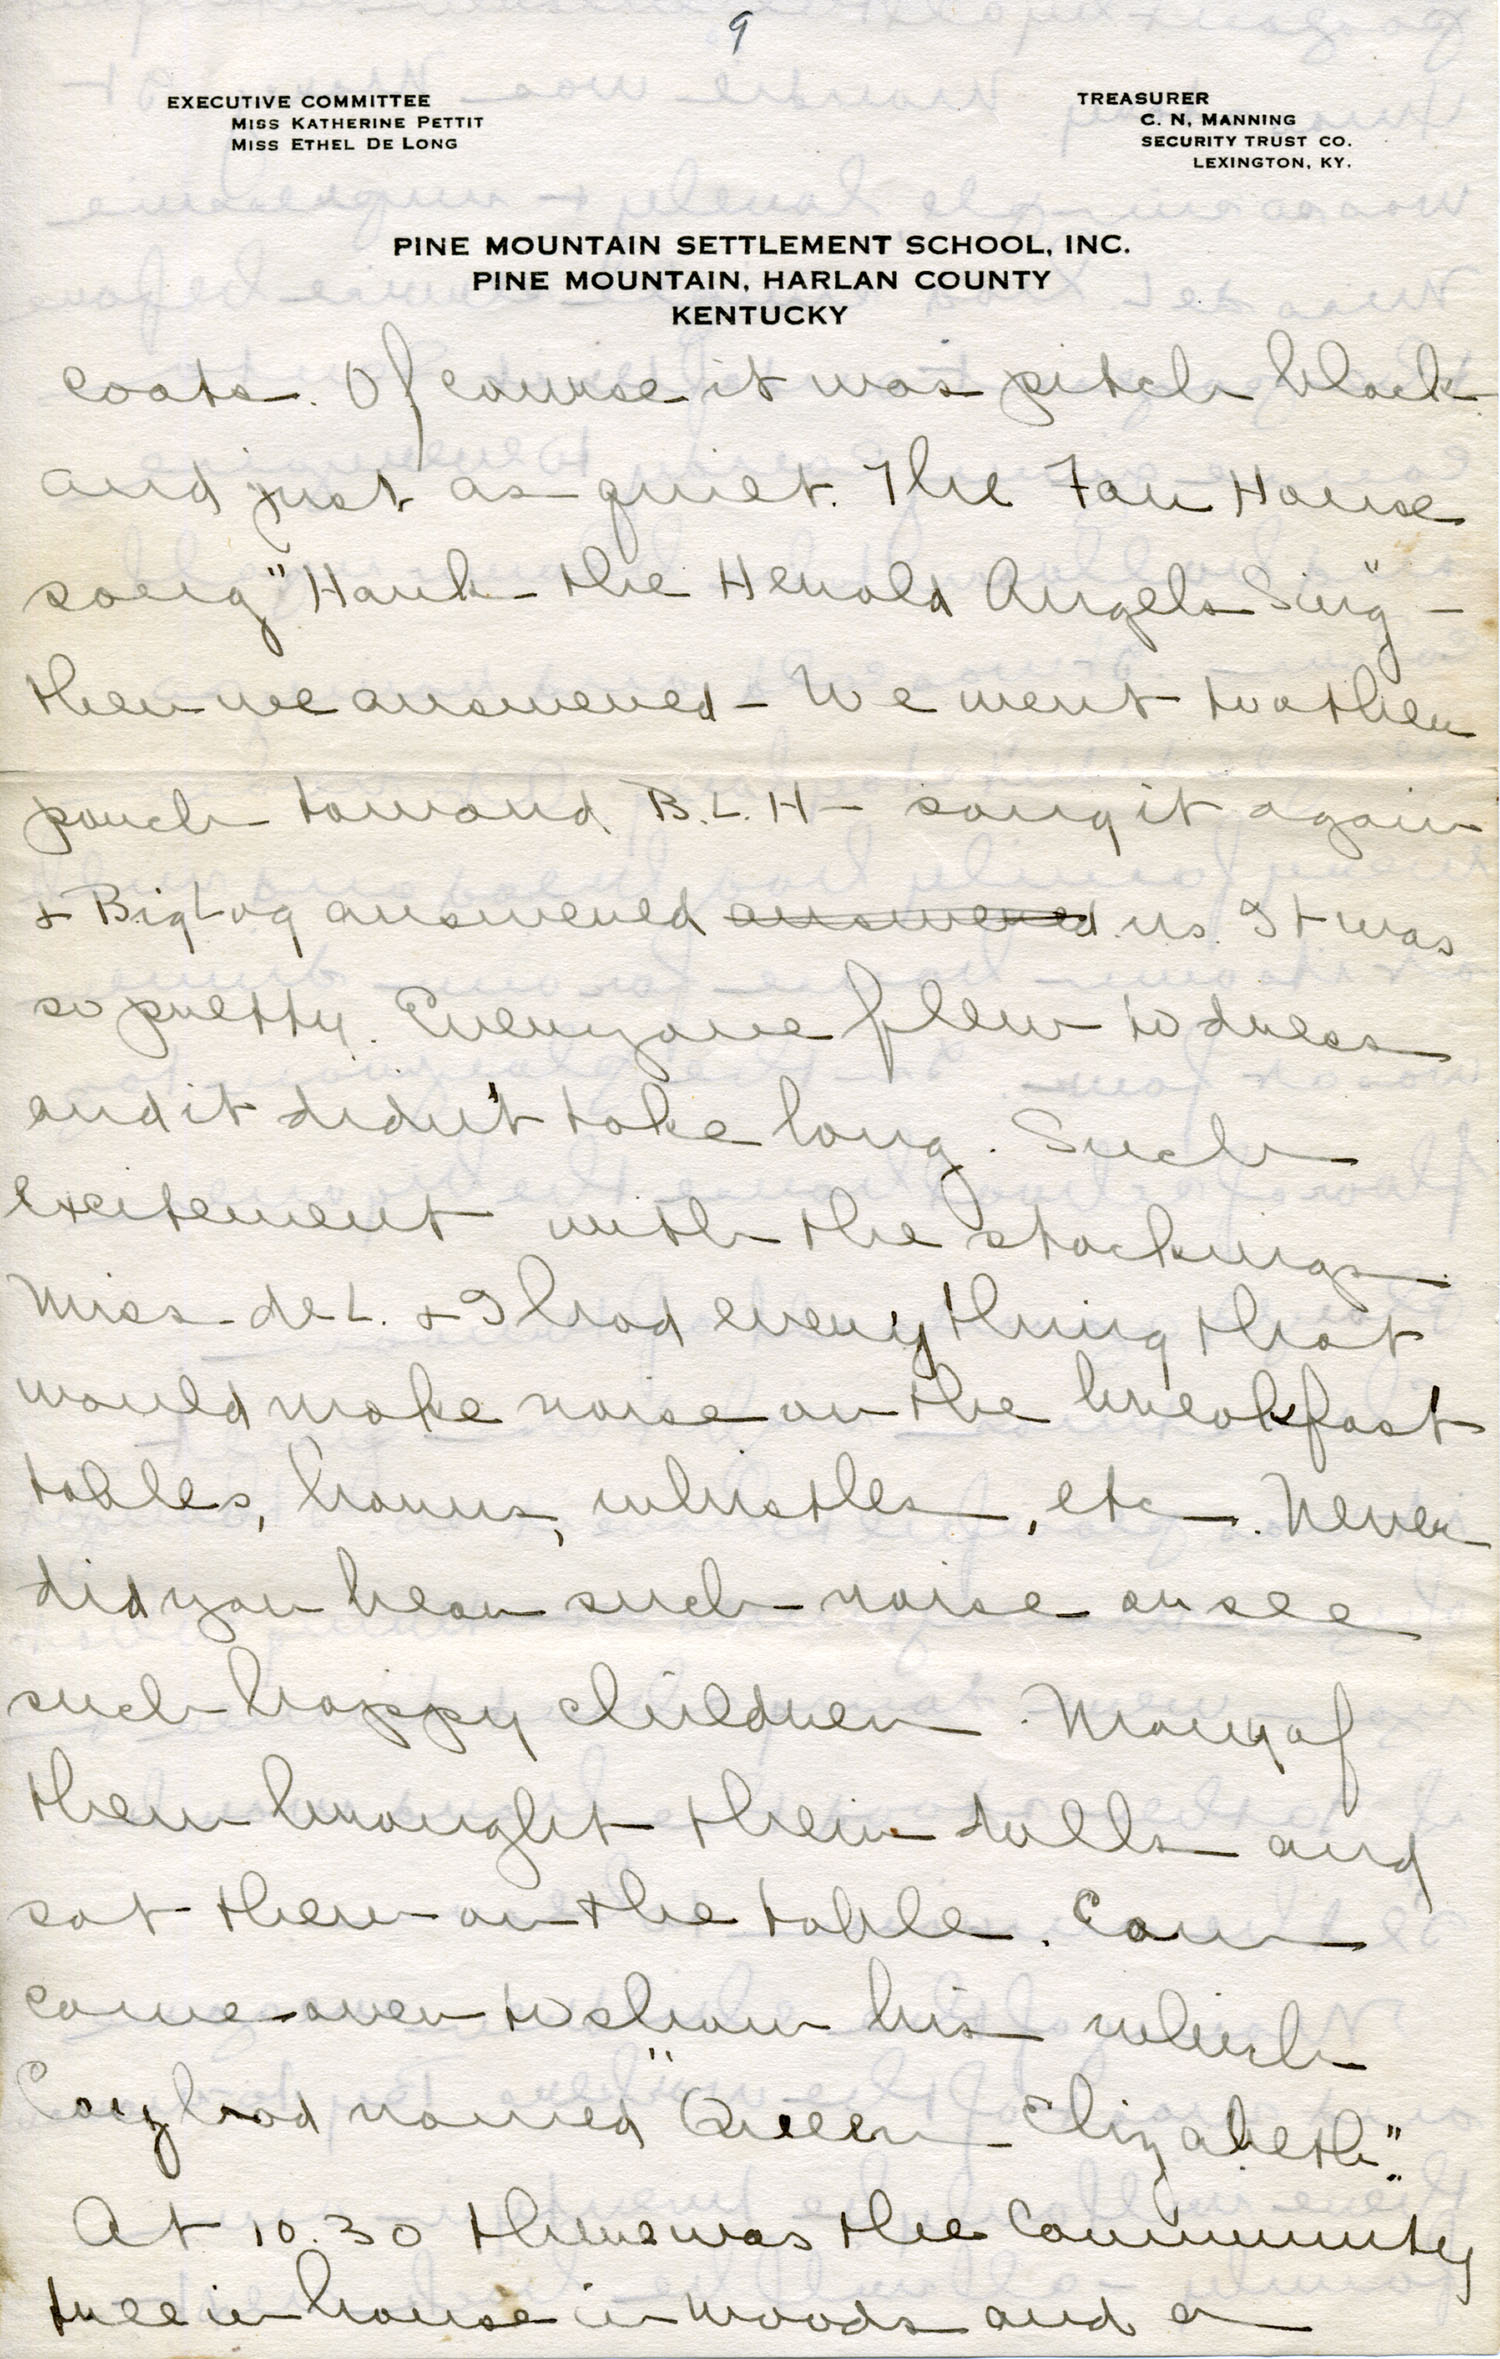 9
EXECUTIVE COMMITTEE
MISS KATHERINE PETTIT
MISS ETHEL DE LONG
TREASURER
C. N. MANNING
SECURITY TRUST CO.
LEXINGTON, KY.
PINE MOUNTAIN SETTLEMENT SCHOOL, INC.
PINE MOUNTAIN, HARLAN COUNTY
KENTUCKY
coats. Of course it was pitch black
and just as quiet. The Far House
song "Hark the Herald Angels Sing" –
then we answered – We went to other
porch toward B.L.H – sang it again
& Big Log answered answered us. It was
so pretty. Everyone flew to dress
and it didn't take long. Such
excitement with the stockings
Miss de L. & I had everything that
would make noise on the breakfast
tables, horns, whistles, etc. Never
did you hear such noise or see
such happy children. Many of
them brought their dolls and
sat them on the table.
came over to show his which
had named "Queen Elizabeth".
At 10.30 there was the Community
tree in house in woods and a